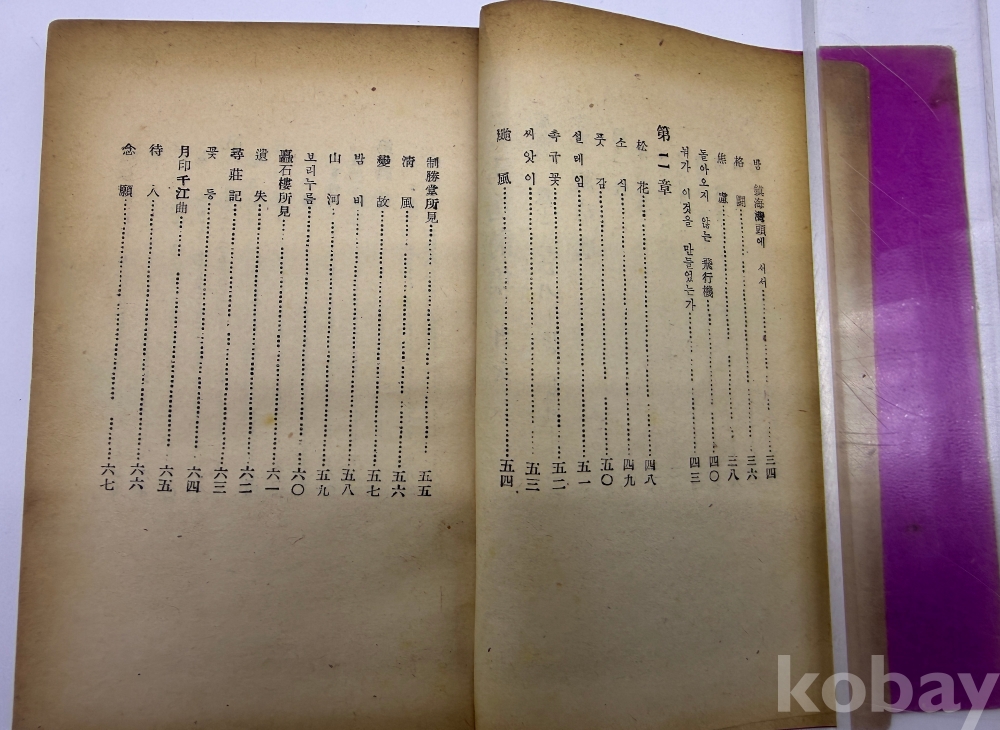 鎭海灣頭에 서서 三四
格鬪 三六
焦慮 三八
돌아오지 않는 飛行機 四〇
뉘가 이것을 만들었는가 四三
第二章
松花 四八
소식 四九
풋감 五〇
설레임 五一
촉규꽃 五二
씨앗이 五三
颱風 五四
制勝堂所見 五五
淸風 五六
變故 五七
밤비 五八
山河 五九
보리누름 六〇
矗石樓所見 六一
遺失 六二
尋莊記 六三
꽃등 六四
月印千江曲 六五
待人 六六
念願 六七
kobay